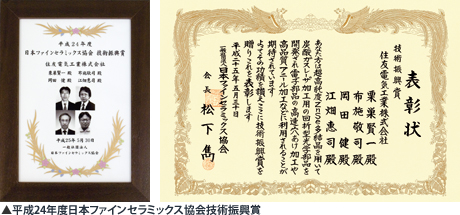 平成24年度
日本ファインセラミックス協会 技術振興賞
住友電気工業株式会社
栗巣賢一 殿 布施敬司 殿
岡田 健 殿 江畑恵司 殿
平成25年5月30日
一般社団法人
日本ファインセラミックス協会
表彰状
技術振興賞
住友電気工業株式会社
栗巣賢一殿
布施敬司殿
岡田 健殿
江畑恵司殿
あなた方は超高純度ZnSe多結晶を用いて
炭酸ガスレーザ加工用の回折型光学部品を
開発され電子部品の高速穴あけ加工や
高品質アニール加工などに利用されることが
期待されています
よってその功績を讃えここに技術振興賞を
贈りこれを表彰します
平成二十五年五月三十日
一般社団法人日本ファインセラミックス協会
会長 松下 雋
▲平成24年度日本ファインセラミックス協会技術振興賞